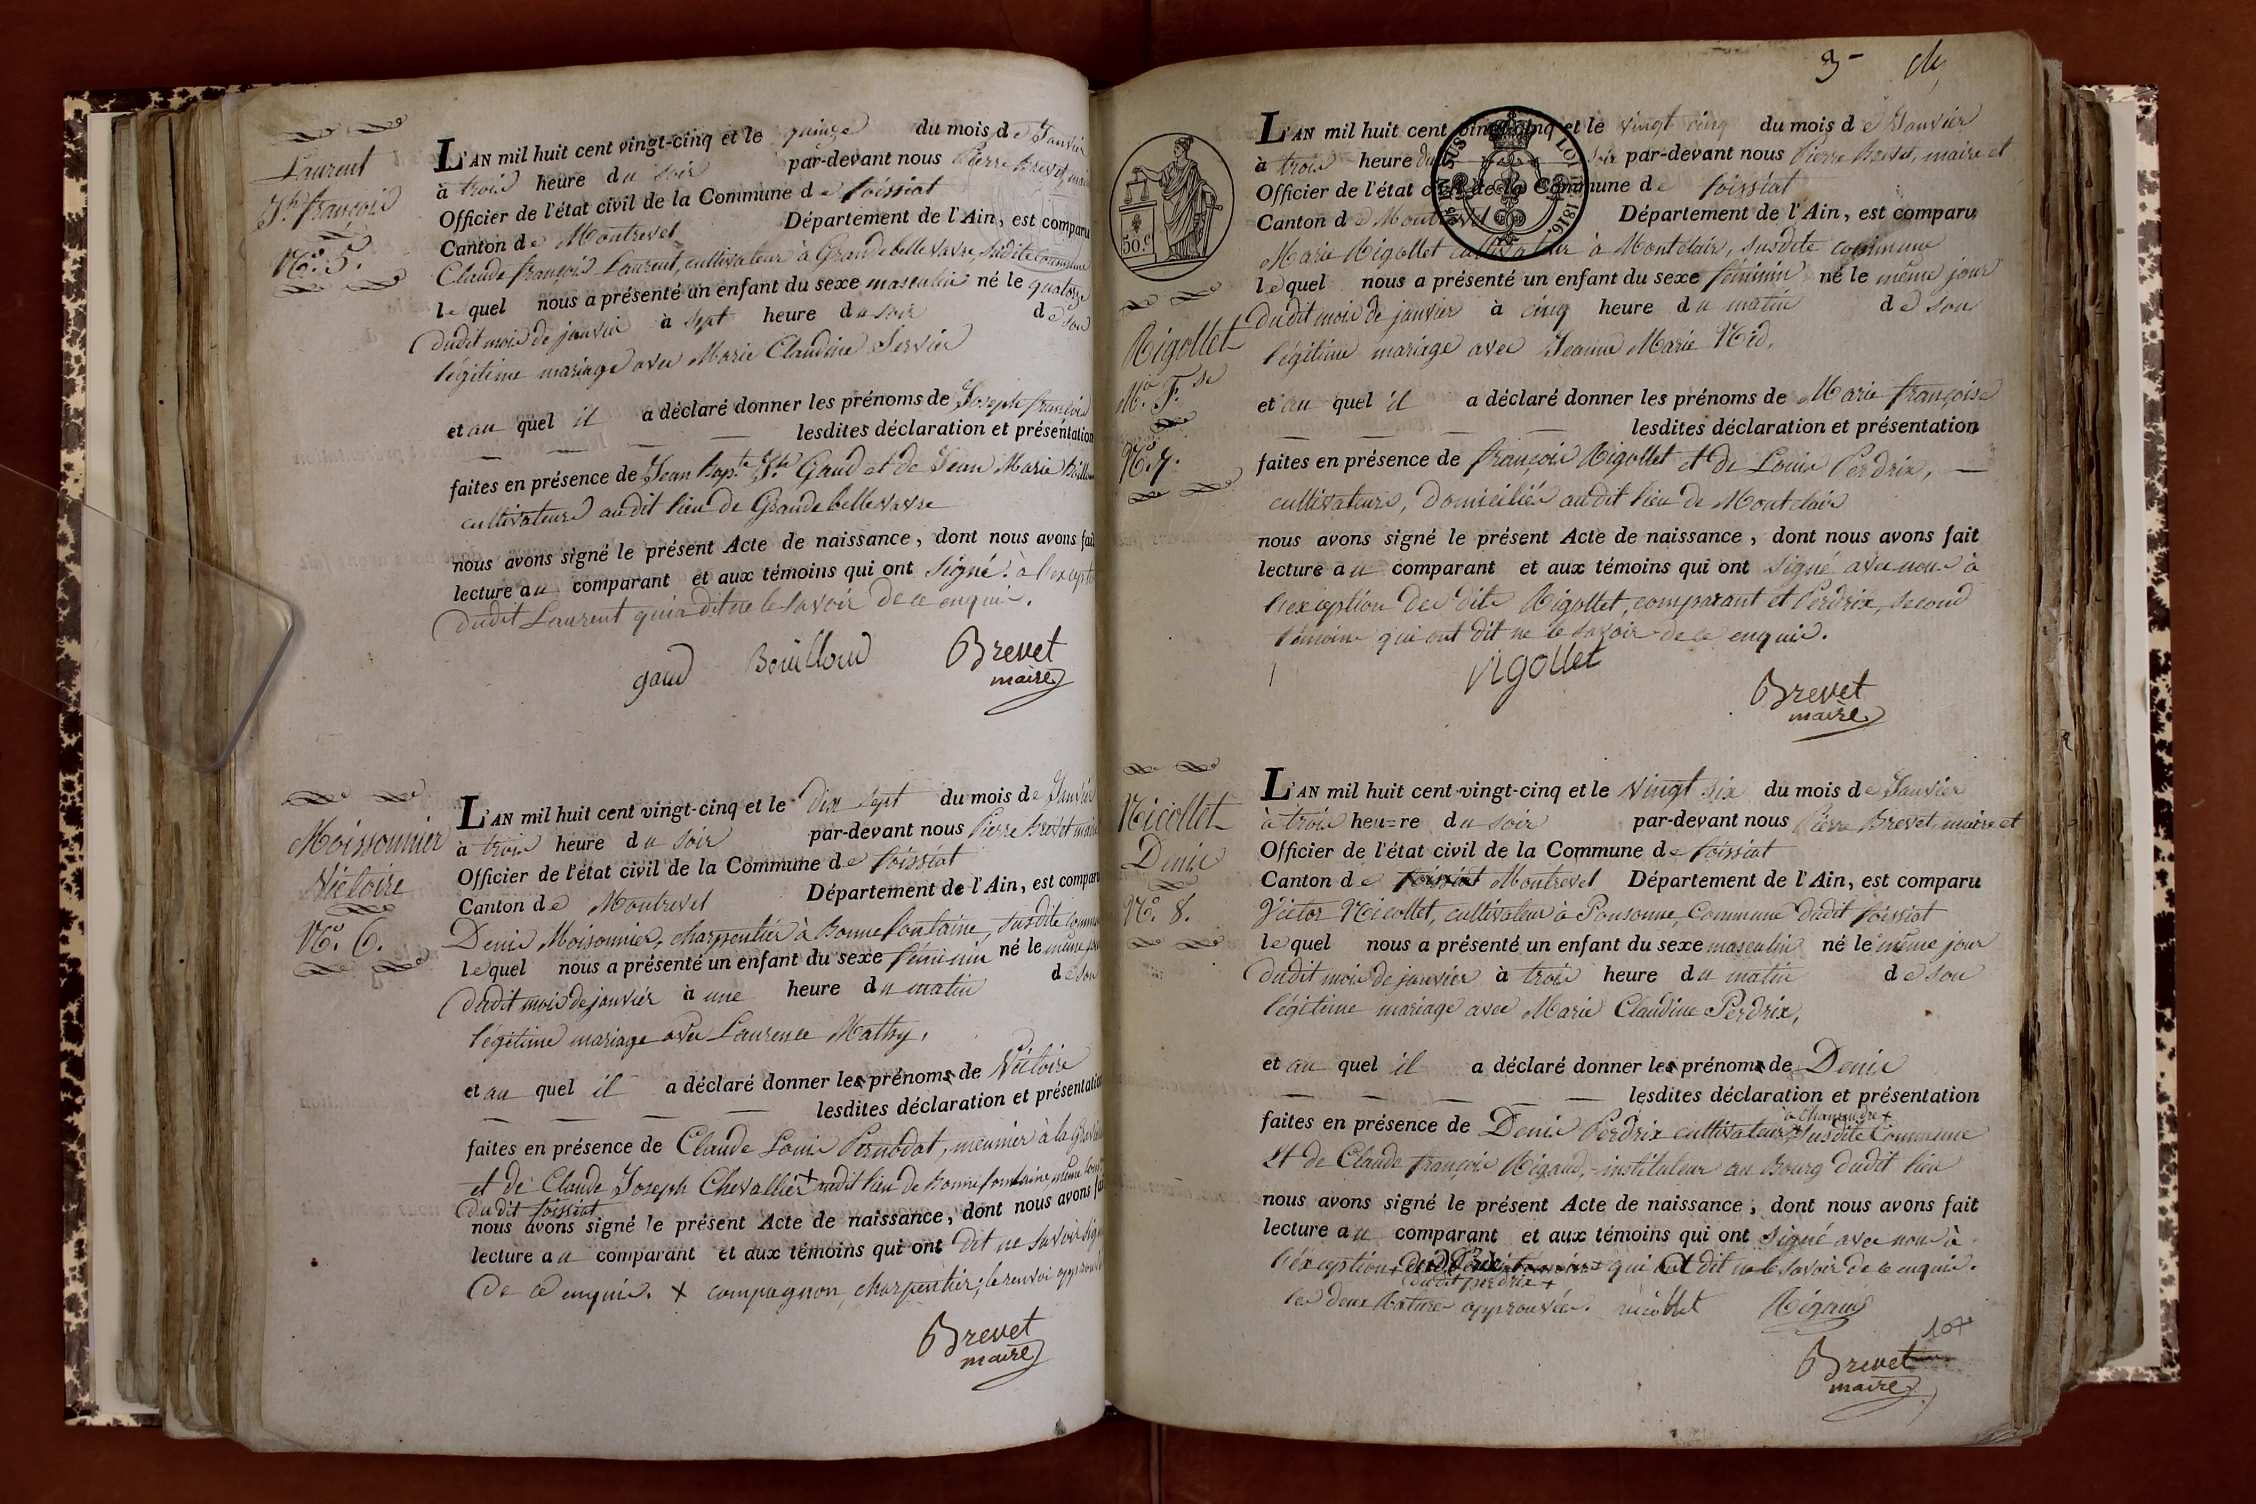 Laurent
Jh. françois
N.º 5.
L'AN mil huit cent vingt-cinq et le quinze du mois de Janvier
à trois heure du soir par-devant nous Pierre Brevet, maire
Officier de l'état civil de la Commune de foissiat
Canton de Montrevel Département de l'Ain, est comparu
Claude françois Laurent, cultivateur à Grandebellevavre, susdite Commune
lequel nous a présenté un enfant du sexe masculin né le quatorze
dudit mois de janvier à sept heure du soir de son
légitime mariage avec Marie Claudine Servier
et au quel il a déclaré donner les prénoms de Joseph françois
lesdites déclaration et présentation
faites en présence de Jean Bapte. Jh. Gaud et de Jean Marie
cultivateurs audit lieu de Grandebellevavre
nous avons signé le présent Acte de naissance, dont nous avons fait
lecture au comparant et aux témoins qui ont signé, à l'exception
dudit Laurent qui a dit ne le savoir de ce enquis.
gaud Bouilloud Brevet
maire
Moissonnier
Victoire
N.º 6.
L'AN mil huit cent vingt-cinq et le dix sept du mois de Janvier
à trois heure du soir par-devant nous Pierre Brevet maire
Officier de l'état civil de la Commune de foissiat
Canton de Montrevel Département de l'Ain, est comparu
Denis Moisonnier, charpentier à Bonnefontaine, susdite Commune
lequel nous a présenté un enfant du sexe féminin né le même jour
dudit mois de janvier à une heure du matin de son
légitime mariage avec Laurence Mathy,
et au quel il a déclaré donner les prénoms de Victoire
lesdites déclaration et présentation
faites en présence de Claude Louis Pernodat, meunier à la
et de Claude Joseph Chevallier + audit lieu de Bonnefontaine, même
dudit foissiat
nous avons signé le présent Acte de naissance, dont nous avons fait
lecture au comparant et aux témoins qui ont dit ne savoir signer
de ce enquis. + compagnon charpentier, le renvoi approuvé
Brevet
maire
3- 
50.C
L'AN mil huit cent vingt-cinq et le vingt cinq du mois de Janvier
à trois heure du soir par-devant nous Pierre Brevet, maire et
Officier de l'état civil de la Commune de foissiat
Canton de Montrevel Département de l'Ain, est comparu
Marie Rigollet cultivateur à Montclair, susdite commune
lequel nous a présenté un enfant du sexe féminin né le même jour
dudit mois de janvier à cinq heure du matin de son
légitime mariage avec Jeanne Marie Nid.
Rigollet
M.ie F.se
N.º 7.
et au quel il a déclaré donner les prénoms de Marie françoise
lesdites déclaration et présentation
faites en présence de françois Rigollet et de Louis Perdrix,
cultivateurs, domiciliés audit lieu de Montclair
nous avons signé le présent Acte de naissance, dont nous avons fait
lecture au comparant et aux témoins qui ont signé avec nous à
l'exception des dits Rigollet, comparant et Perdrix, second
témoins qui ont dit ne le savoir de ce enquis.
rigollet
Brevet
maire
Nicollet
Denis
N.º 8.
L'AN mil huit cent vingt-cinq et le vingt six du mois de Janvier
à trois heu=re du soir par-devant nous Pierre Brevet, maire et
Officier de l'état civil de la Commune de foissiat
Canton de foissiat Montrevel Département de l'Ain, est comparu
Victor Nicollet, cultivateur à Ponsonne, Commune dudit foissiat
lequel nous a présenté un enfant du sexe masculin né le même jour
dudit mois de janvier à trois heure du matin de son
légitime mariage avec Marie Claudine Perdrix,
et au quel il a déclaré donner les prénoms de Denis
lesdites déclaration et présentation
faites en présence de Denis Perdrix cultivateur susdite Commune
et de Claude françois Rigaud, instituteur au Bourg dudit lieu
nous avons signé le présent Acte de naissance, dont nous avons fait
lecture au comparant et aux témoins qui ont signé avec nous à
l'exception qui a dit ne le savoir de ce enquis.
dudit perdrix +
les deux Ratures approuvées. nicollet Rigaud
107
Brevet
maire